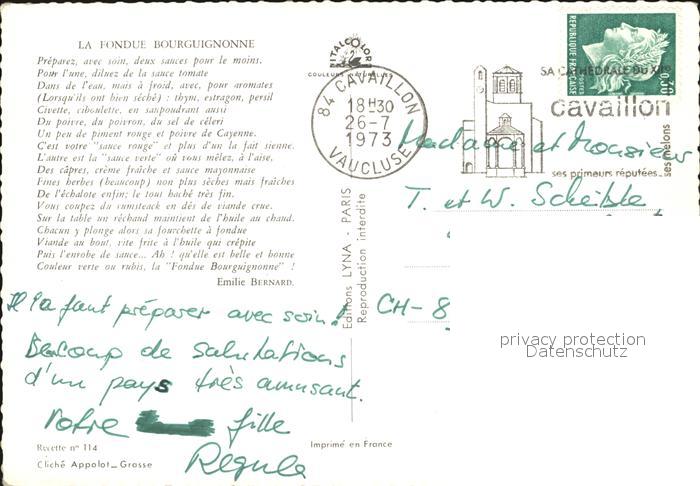 LA FONDUE BOURGUIGNONNE
Préparez, avec soin, deux sauces pour le moins.
Pour l'une, diluez de la sauce tomate
Dans de l'eau, mais à froid, avec, pour aromates
(Lorsqu'ils ont bien séché) : thym, estragon, persil
Civette, ciboulette, en saupoudrant aussi
Du poivre, du poivron, du sel de céleri
Un peu de piment rouge et poivre de Cayenne.
C'est votre "sauce rouge" et plus d'un la fait sienne.
L'autre est la "sauce verte" où vous mêlez, à l'aise,
Des câpres, crème fraîche et sauce mayonnaise
Fines herbes (beaucoup) non plus sèches mais fraîches
De l'échalote enfin; le tout haché très fin.
Vous coupez du rumsteack en dés de viande crue.
Sur la table un réchaud maintient de l'huile au chaud.
Chacun y plonge alors sa fourchette à fondue
Viande au bout, vite frite à l'huile qui crépite
Puis l'enrobe de sauce... Ah ! qu'elle est belle et bonne
Couleur verte ou rubis, la "Fondue Bourguignonne" !
Emilie BERNARD.
Il la faut préparer avec soin!
Beaucoup de salutations
d'un pays très amusant.
Votre fille
Regula
Recette n° 114
Cliché Appolot_Grasse
Imprimé en France
Editions LYNA - PARIS
Reproduction interdite
VITALCOLOR
COULEURS NATURELLES
84 CAVAILLON
18H30
26-7
1973
VAUCLUSE
SA CATHÉDRALE DU XIIe
cavaillon
ses primeurs réputées
ses melons
REPUBLIQUE FRANÇAISE
0,30
Madame et Monsieur
T. et W. Scheible
CH-8
privacy protection
Datenschutz